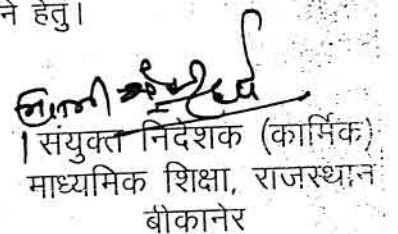 ने हेतु।
संयुक्त निदेशक (कार्मिक)
माध्यमिक शिक्षा, राजस्थान
बीकानेर